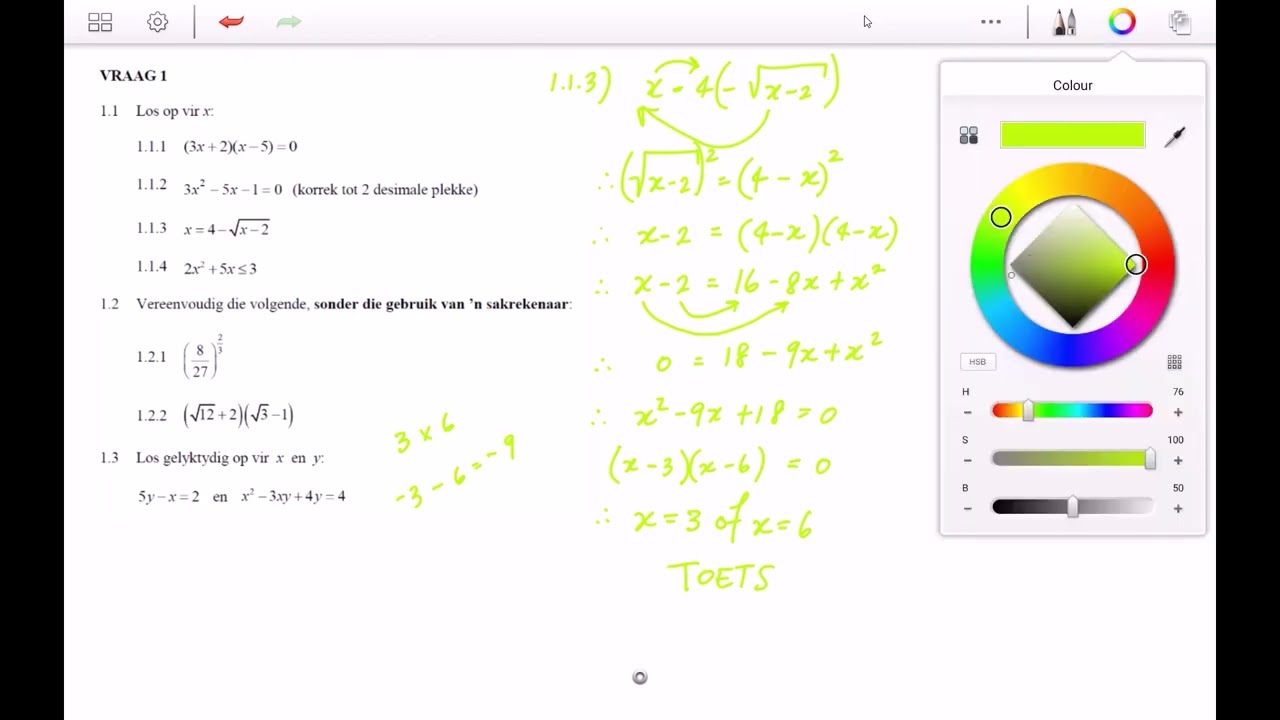 VRAAG 1
1.1 Los op vir x:
1.1.1 (3x + 2)(x − 5) = 0
1.1.2 3x² − 5x − 1 = 0 (korrek tot 2 desimale plekke)
1.1.3 x = 4 − √(x − 2)
1.1.4 2x² + 5x ≤ 3
1.2 Vereenvoudig die volgende, sonder die gebruik van 'n sakrekenaar:
1.2.1 (8/27)^(2/3)
1.2.2 (√12 + 2)(√3 − 1)
1.3 Los gelyktydig op vir x en y:
5y − x = 2 en x² − 3xy + 4y = 4
3 × 6
-3 - 6 = -9
1.1.3) x - 4(-√(x-2))
∴ (√(x-2))² = (4 - x)²
∴ x-2 = (4-x)(4-x)
∴ x-2 = 16 - 8x + x²
∴ 0 = 18 - 9x + x²
∴ x² - 9x + 18 = 0
(x-3)(x-6) = 0
∴ x = 3 of x = 6
TOETS
Colour
HSB
H 76
− +
S 100
− +
B 50
− +